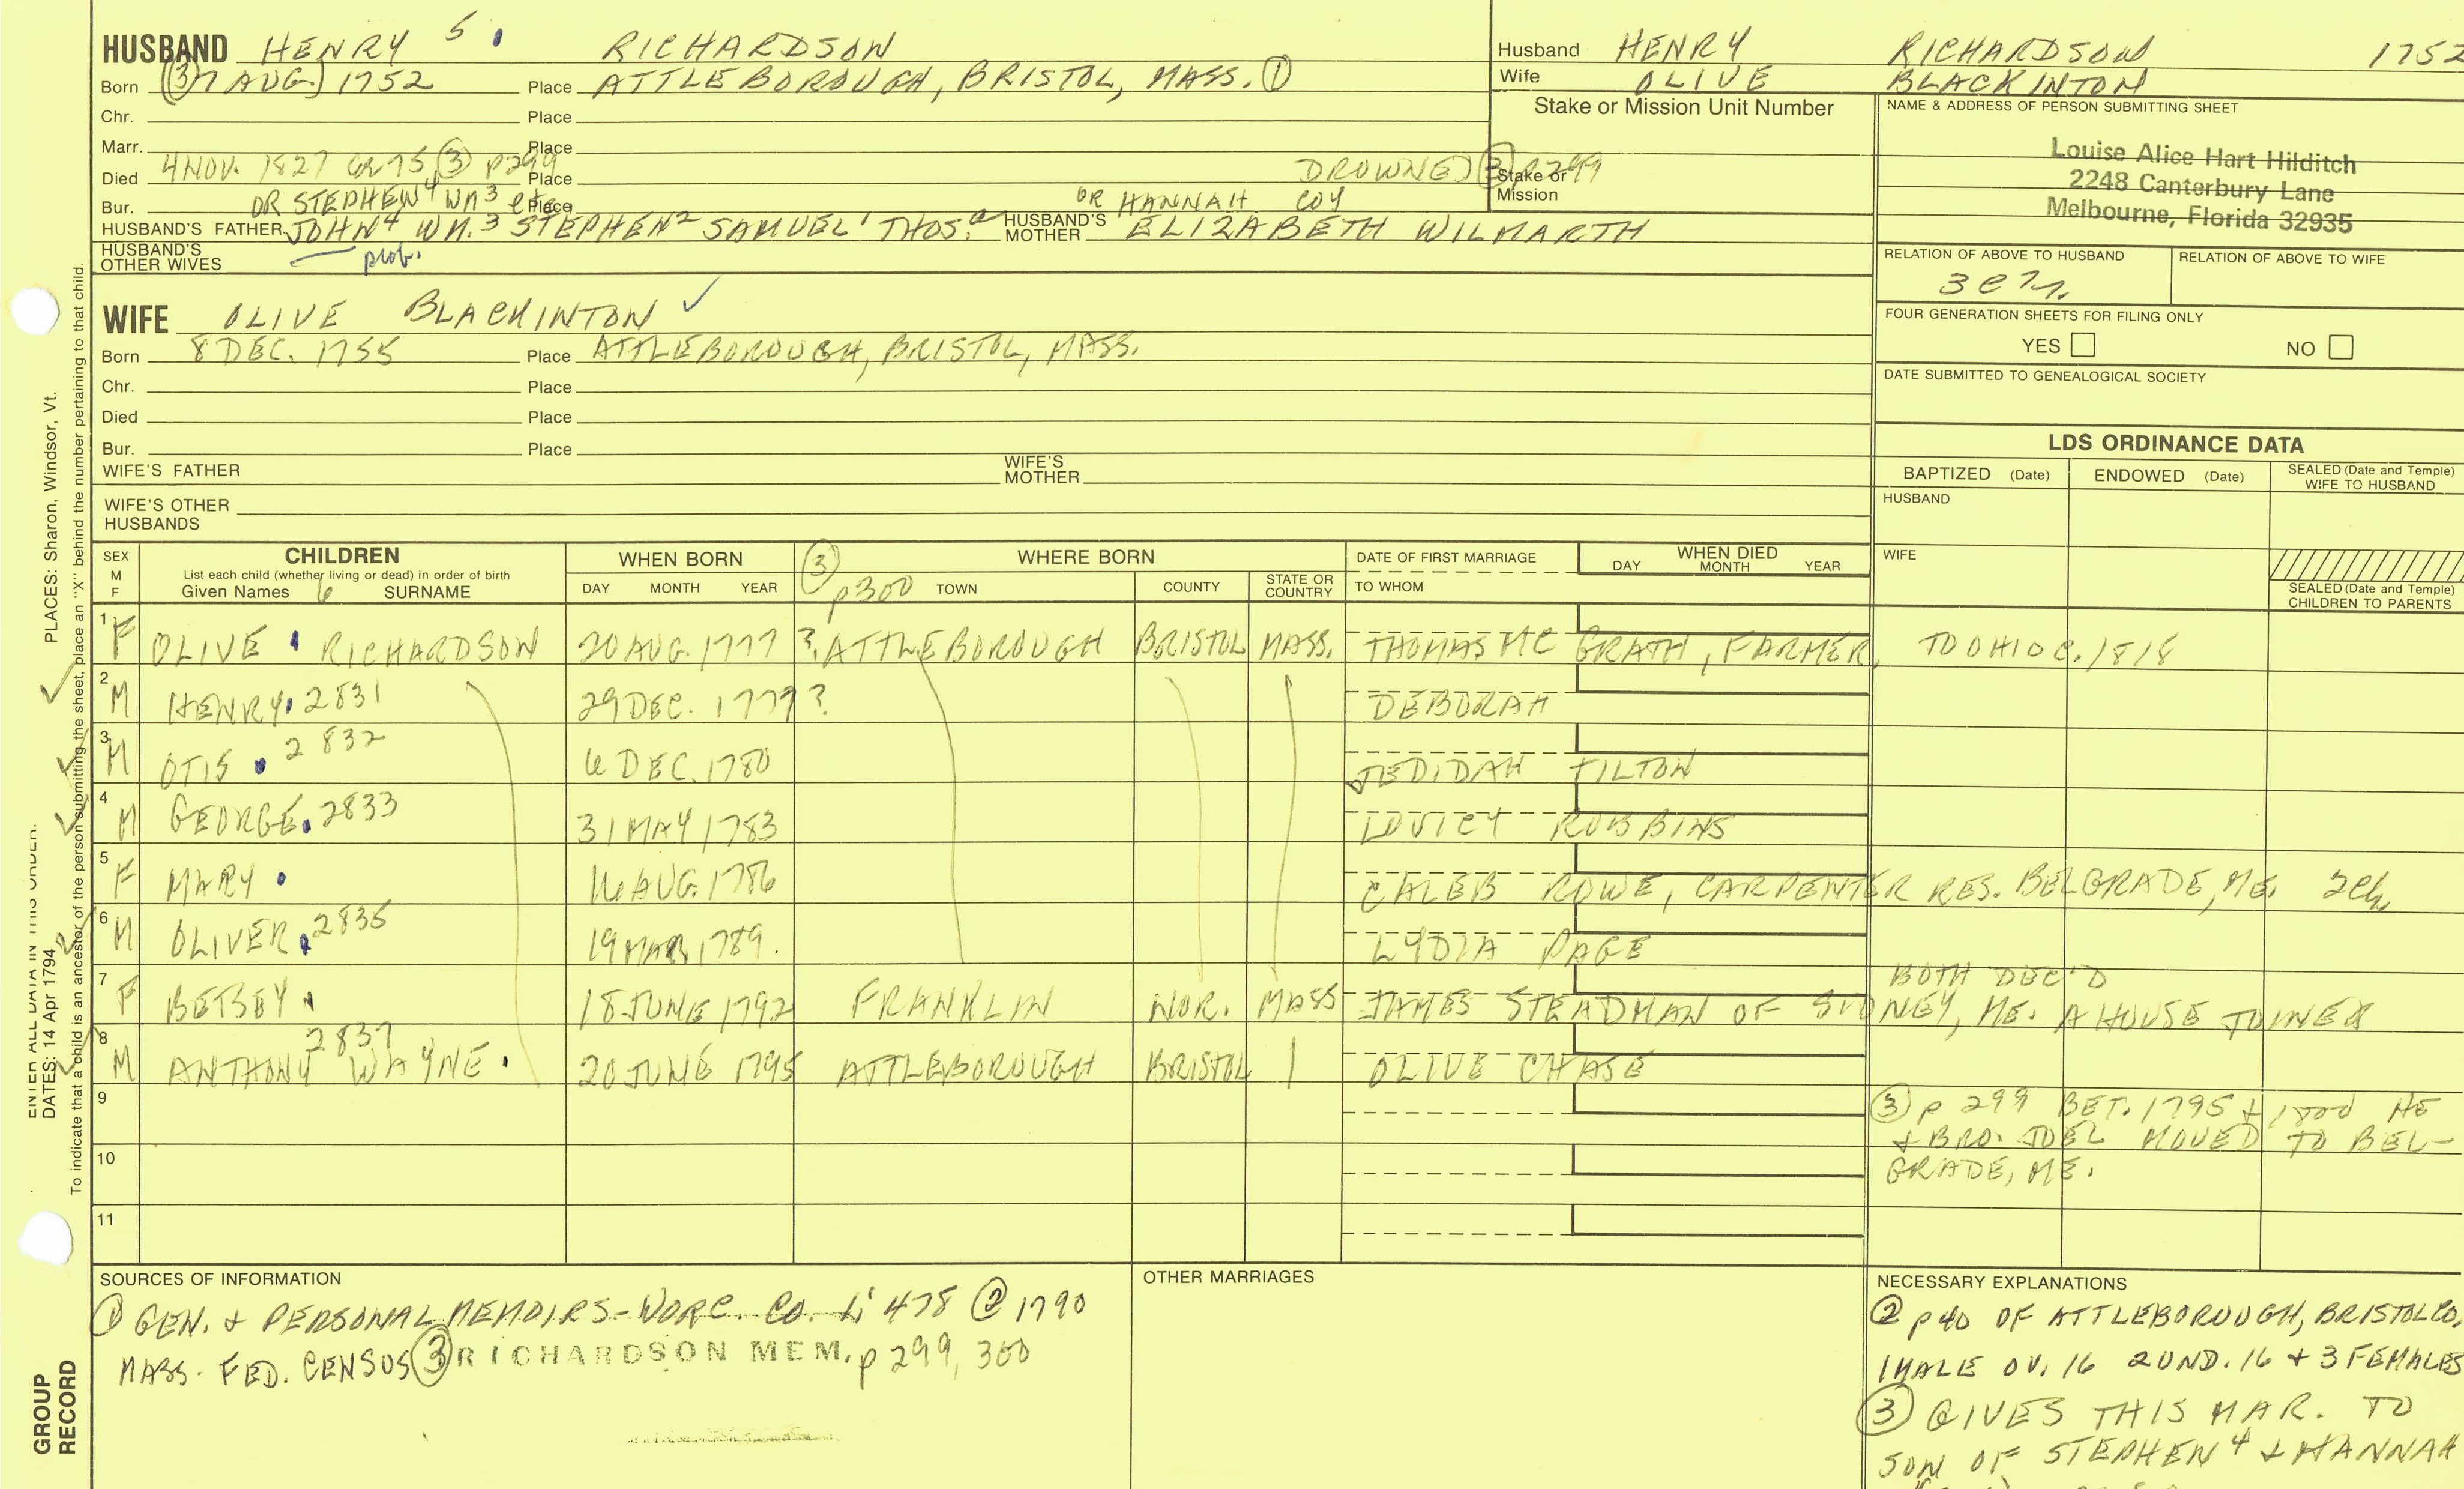 HUSBAND HENRY 5 RICHARDSON
Born (3) 7 AUG. 1752 Place ATTLEBOROUGH, BRISTOL, MASS. (1)
Chr. Place
Marr. Place
Died 4 NOV. 1827 75 (3) p299 Place DROWNED (3) p299
Bur. OR STEPHEN4 WM3 etc Place OR HANNAH COY
HUSBAND'S FATHER JOHN4 WM.3 STEPHEN2 SAMUEL1 THOS.a HUSBAND'S MOTHER ELIZABETH WILMARTH
HUSBAND'S OTHER WIVES prob.
WIFE OLIVE BLACKINTON ✓
Born 8 DEC. 1755 Place ATTLEBOROUGH, BRISTOL, MASS.
Chr. Place
Died Place
Bur. Place
WIFE'S FATHER WIFE'S MOTHER
WIFE'S OTHER HUSBANDS
Husband HENRY RICHARDSON 1752
Wife OLIVE BLACKINTON
Stake or Mission Unit Number
Stake or Mission
NAME & ADDRESS OF PERSON SUBMITTING SHEET
Louise Alice Hart Hilditch
2248 Canterbury Lane
Melbourne, Florida 32935
RELATION OF ABOVE TO HUSBAND RELATION OF ABOVE TO WIFE
FOUR GENERATION SHEETS FOR FILING ONLY
YES NO
DATE SUBMITTED TO GENEALOGICAL SOCIETY
LDS ORDINANCE DATA
BAPTIZED (Date) ENDOWED (Date) SEALED (Date and Temple) WIFE TO HUSBAND
HUSBAND
WIFE
SEALED (Date and Temple) CHILDREN TO PARENTS
SEX M F CHILDREN WHEN BORN (3) WHERE BORN DATE OF FIRST MARRIAGE WHEN DIED
List each child (whether living or dead) in order of birth
Given Names 6 SURNAME DAY MONTH YEAR p300 TOWN COUNTY STATE OR COUNTRY TO WHOM DAY MONTH YEAR
1 F OLIVE RICHARDSON 20 AUG. 1777 ? ATTLEBOROUGH BRISTOL MASS. THOMAS MC GRATH, FARMER, TO OHIO C. 1818
2 M HENRY 2831 29 DEC. 1777 ? DEBORAH
3 M OTIS 2832 6 DEC. 1780 JEDIDAH TILTON
4 M GEORGE 2833 31 MAY 1783 LOVICY ROBBINS
5 F MARY 16 AUG. 1786 CALEB ROWE, CARPENTER RES. BELGRADE, ME. 2 ch.
6 M OLIVER 2835 19 MAR. 1789. LYDIA PAGE
BOTH DEC'D
7 F BETSEY 18 JUNE 1792 FRANKLIN NOR. MASS JAMES STEADMAN OF SYDNEY, ME. A HOUSE JOINER
8 M ANTHONY WAYNE 2837 20 JUNE 1795 ATTLEBOROUGH BRISTOL OLIVE CHASE
9 (3) p 299 BET. 1795 + 1800 HE
+ BRO. JOEL MOVED TO BEL-
10 GRADE, ME.
11
SOURCES OF INFORMATION
(1) GEN. + PERSONAL MEMOIRS - WORC. CO. 478 (2) 1790
MASS. FED. CENSUS (3) RICHARDSON MEM. p 299, 300
OTHER MARRIAGES
NECESSARY EXPLANATIONS
(2) p 40 OF ATTLEBOROUGH, BRISTOL CO.
1 MALE OV. 16 2 UND. 16 + 3 FEMALES
(3) GIVES THIS MAR. TO
SON OF STEPHEN4 + HANNAH
PLACES: Sharon, Windsor, Vt.
To indicate that a child is an ancestor of the person submitting the sheet, place an "X" behind the number pertaining to that child.
ENTER ALL DATA IN THIS ORDER:
DATES: 14 Apr 1794
GROUP
RECORD